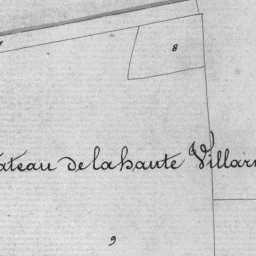 8
ateau de la haute Villar
9